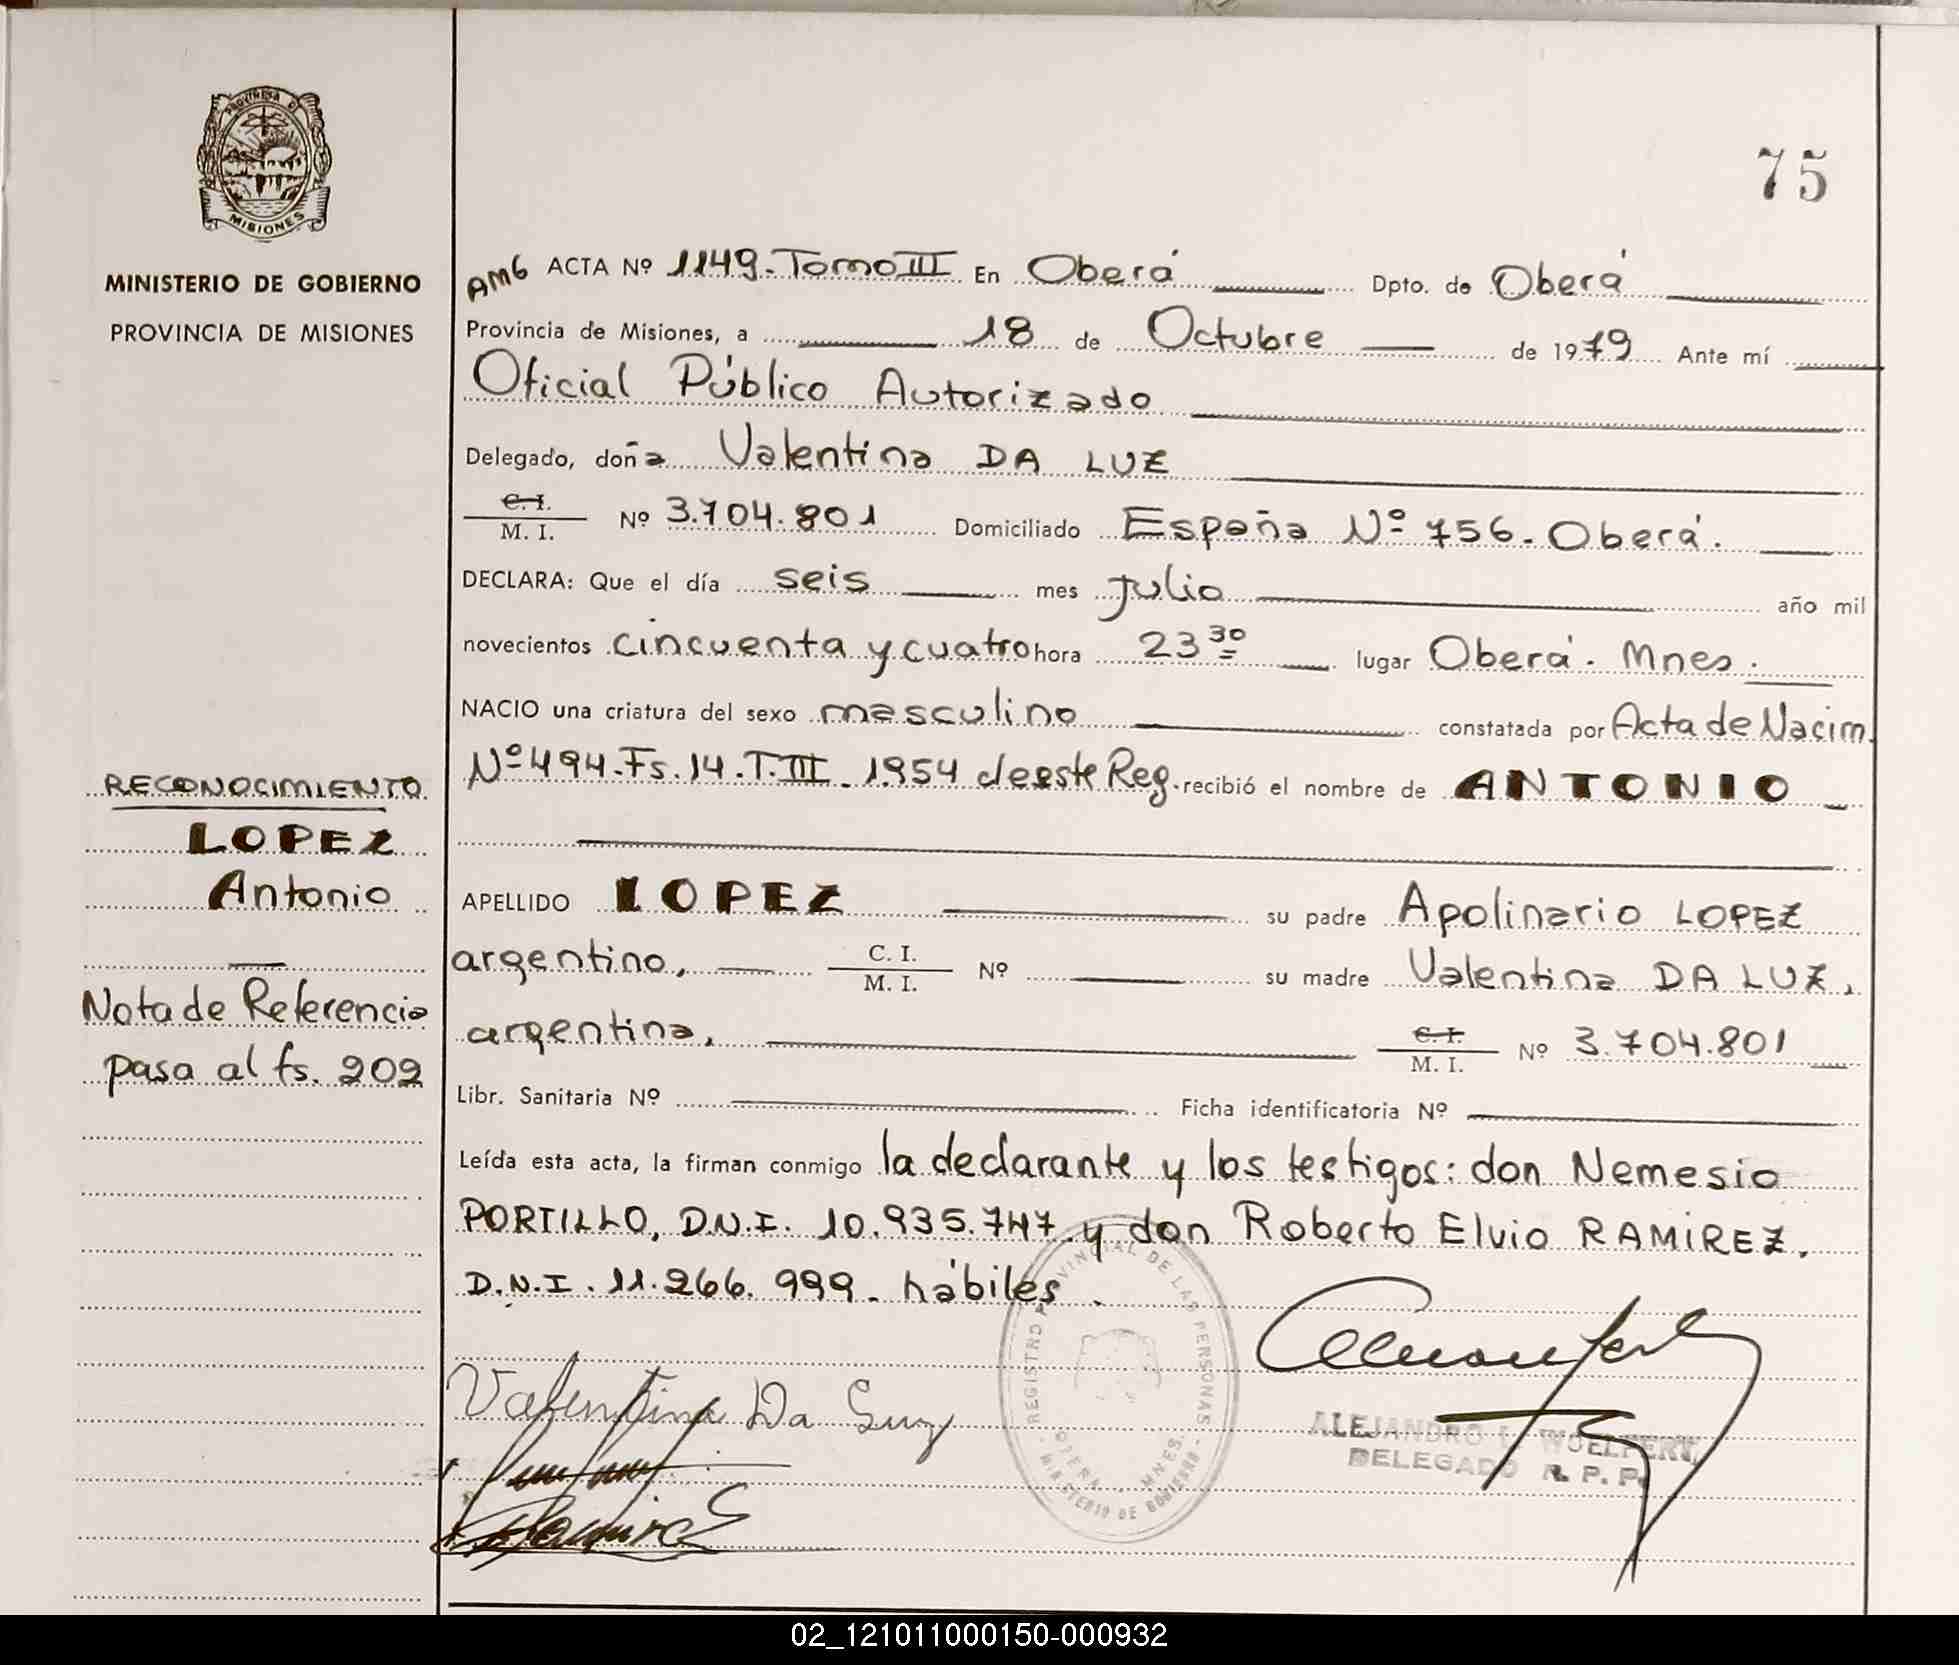 PROVINCIA DE
MISIONES
MINISTERIO DE GOBIERNO
PROVINCIA DE MISIONES
RECONOCIMIENTO
LOPEZ
Antonio
Nota de Referencia
pasa al fs. 202
75
AMG ACTA Nº 1149-Tomo III En Oberá Dpto. de Oberá
Provincia de Misiones, a 18 de Octubre de 1979 Ante mí
Oficial Público Autorizado
Delegado, doña Valentina DA LUZ
C. I.
M. I. Nº 3.704.801 Domiciliado España Nº 756-Oberá.
DECLARA: Que el día seis mes Julio año mil
novecientos cincuenta y cuatro hora 23 30 lugar Oberá. Mnes.
NACIO una criatura del sexo masculino constatada por Acta de Nacim.
Nº 494-Fs.14.T.III-1954 de este Reg. recibió el nombre de ANTONIO
APELLIDO LOPEZ su padre Apolinario LOPEZ
argentino, C. I. M. I. Nº su madre Valentina DA LUZ,
argentina, C. I. M. I. Nº 3.704.801
Libr. Sanitaria Nº Ficha identificatoria Nº
Leída esta acta, la firman conmigo la declarante y los testigos: don Nemesio
PORTILLO, D.N.I. 10.935.747 y don Roberto Elvio RAMIREZ.
D.N.I. 11.266.999- hábiles.
Valentina Da Luz
REGISTRO PROVINCIAL DE LAS PERSONAS
OBERA - MNES.
MINISTERIO DE GOBIERNO
ALEJANDRO L. WOELFERT
DELEGADO R. P. P.
02_121011000150-000932